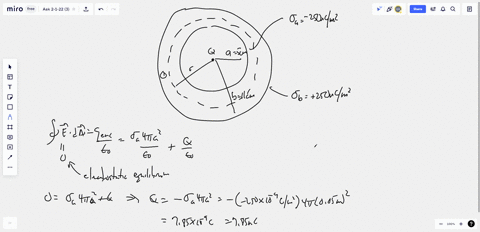 miro
free
Ask 3-1-22 (3)
Share
σₐ=-250nC/m²
Q
a=5cm
r
b=
σ_b=+250nC/m²
∮E⃗·dA⃗=q_enc/ε₀=σₐ4πa²/ε₀+Q/ε₀
0
electrostatic equilibrium
0=σₐ4πa²+Q ⇒ Q=-σₐ4πa²=-(-250×10⁻⁹C/m²)4π(0.05m)²
=7.85×10⁻⁹C=7.85nC